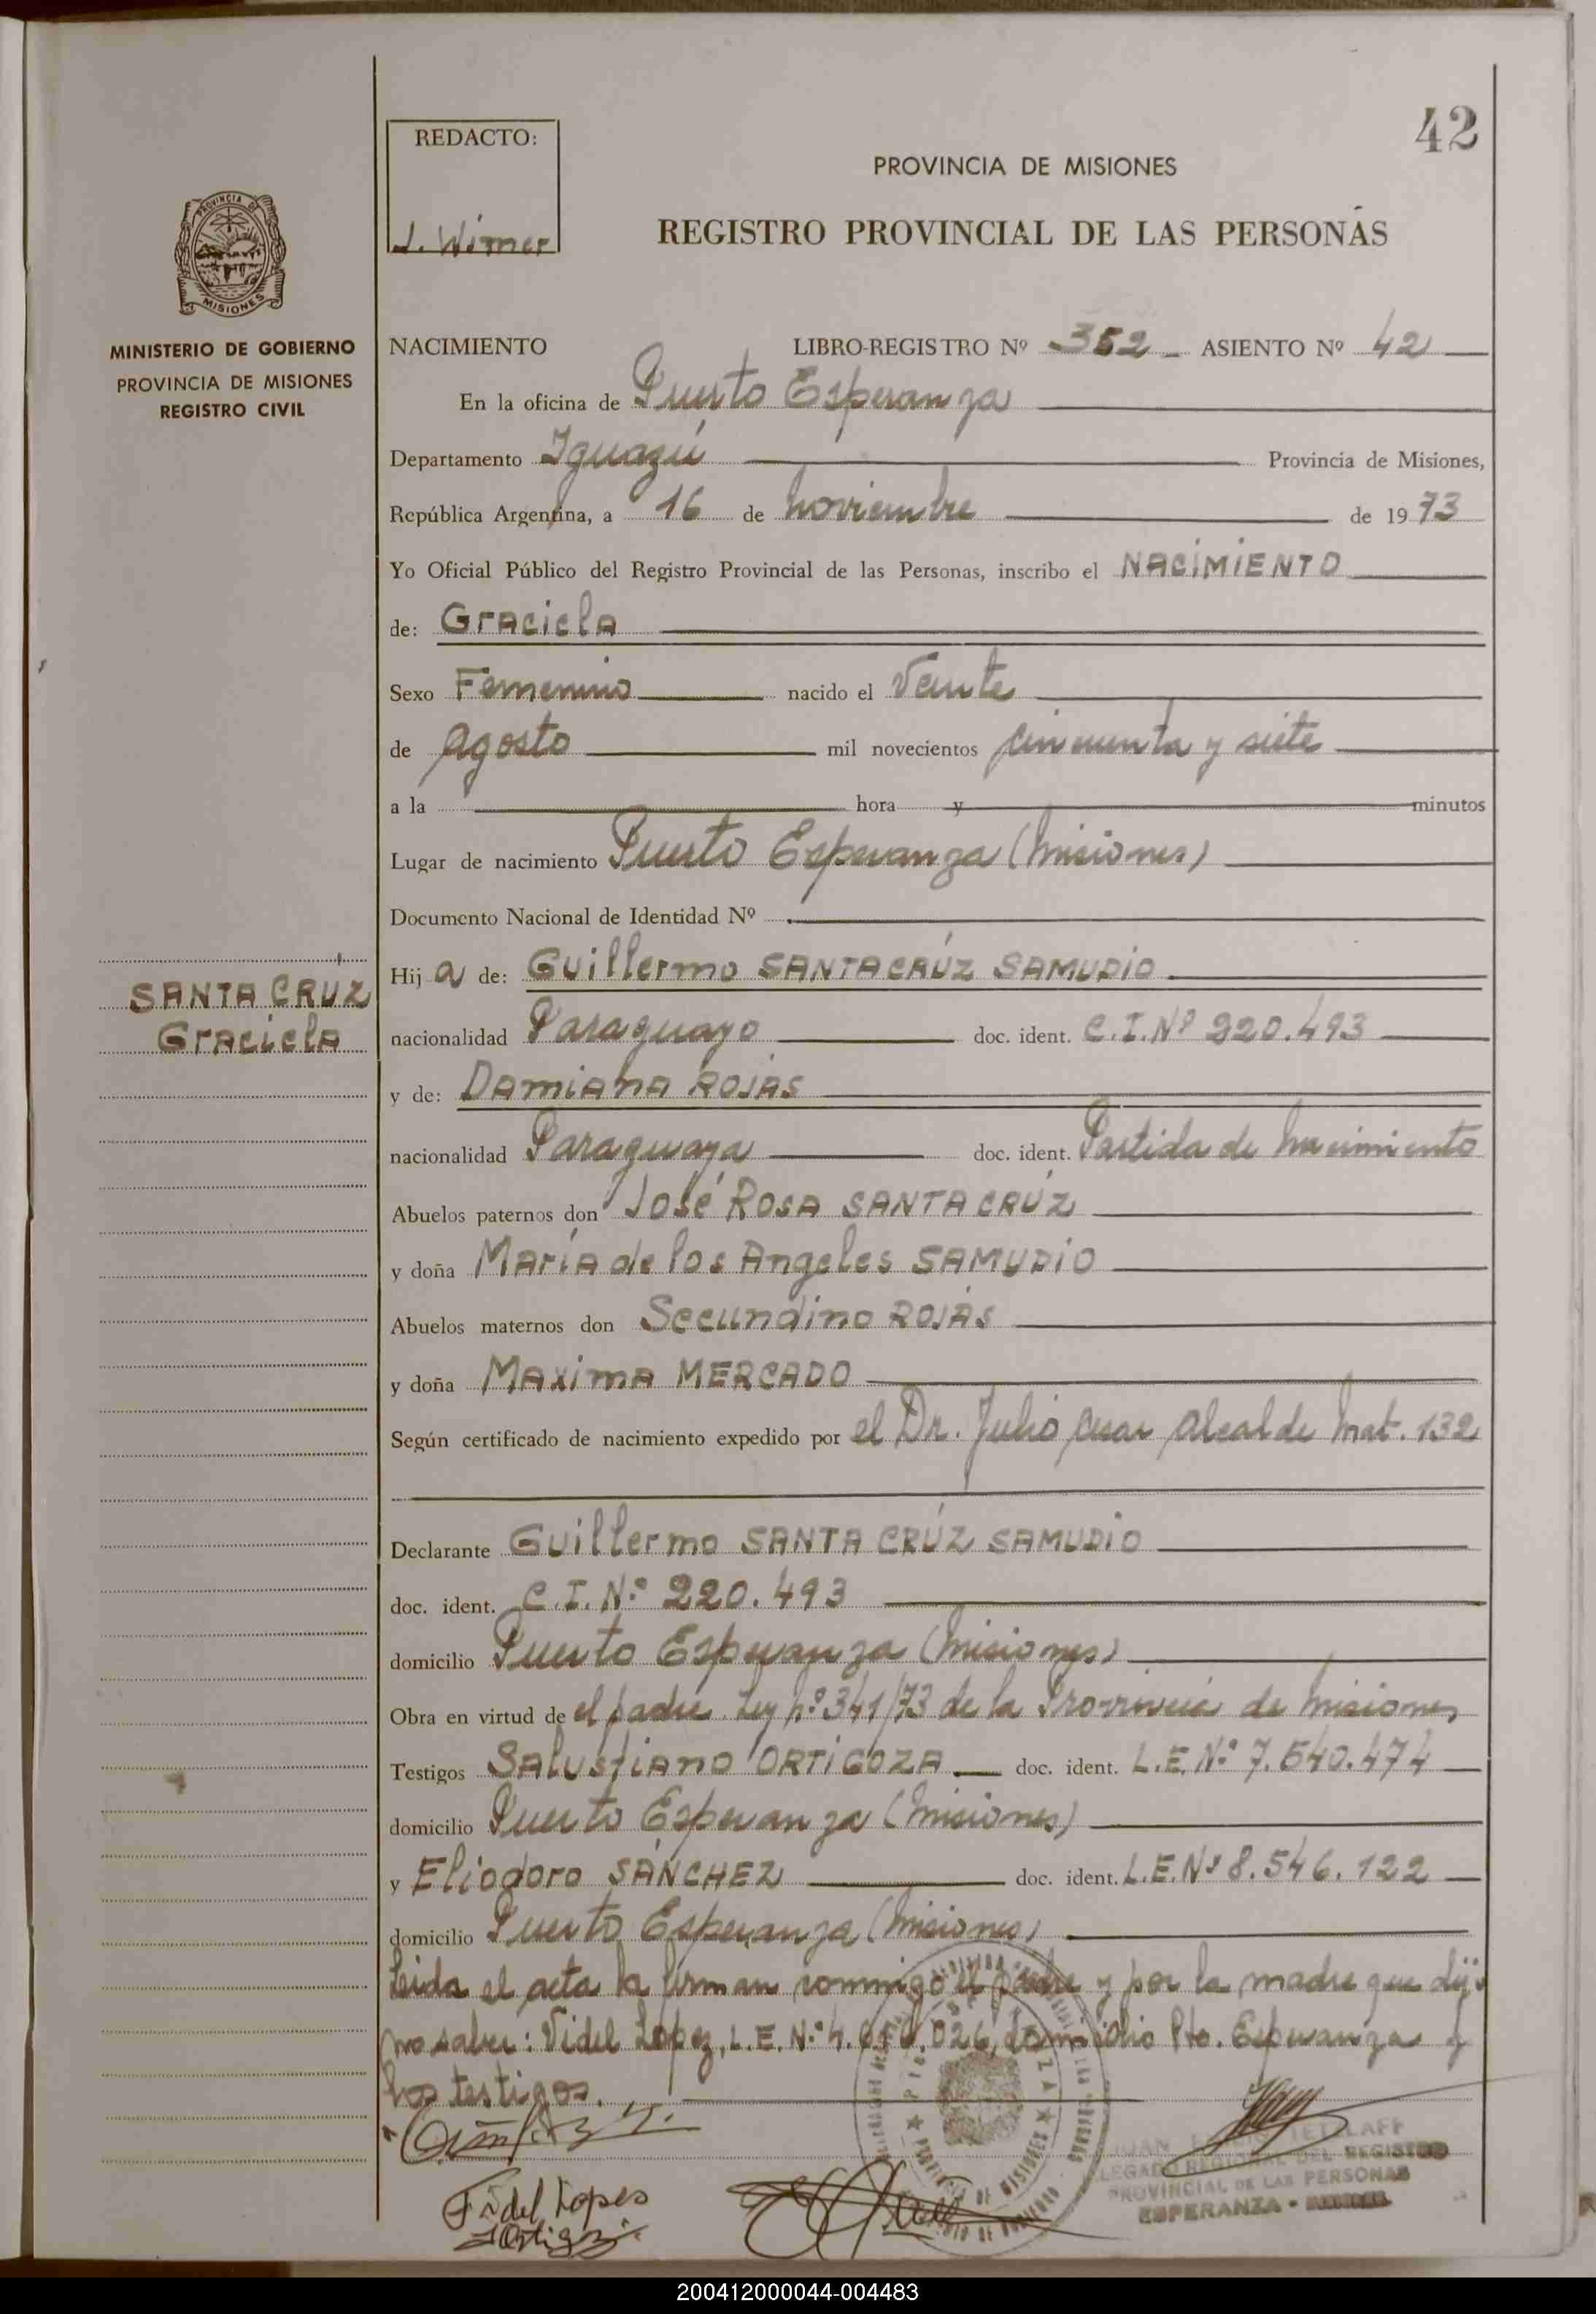 42
REDACTO:
J. Wirner
PROVINCIA DE MISIONES
REGISTRO PROVINCIAL DE LAS PERSONAS
PROVINCIA DE
MISIONES
MINISTERIO DE GOBIERNO
PROVINCIA DE MISIONES
REGISTRO CIVIL
NACIMIENTO LIBRO-REGISTRO Nº 352 ASIENTO Nº 42
En la oficina de Puerto Esperanza
Departamento Iguazú Provincia de Misiones,
República Argentina, a 16 de noviembre de 1973
Yo Oficial Público del Registro Provincial de las Personas, inscribo el NACIMIENTO
de: Graciela
Sexo Femenino nacido el Veinte
de agosto mil novecientos cincuenta y siete
a la hora y minutos
Lugar de nacimiento Puerto Esperanza (Misiones)
Documento Nacional de Identidad Nº
SANTA CRUZ
Graciela
Hija de: Guillermo SANTACRÚZ SAMUDIO
nacionalidad Paraguayo doc. ident. C.I.Nº 220.493
y de: Damiana ROJAS
nacionalidad Paraguaya doc. ident. Partida de nacimiento
Abuelos paternos don José Rosa SANTA CRÚZ
y doña María de los Angeles SAMUDIO
Abuelos maternos don Secundino ROJAS
y doña Maxima MERCADO
Según certificado de nacimiento expedido por el Dr. Julio Cesar Alcalde Mat. 132
Declarante Guillermo SANTA CRÚZ SAMUDIO
doc. ident. C.I. Nº 220.493
domicilio Puerto Esperanza (Misiones)
Obra en virtud de el padre. Ley nº 341/73 de la Provincia de Misiones
Testigos Salustiano ORTIGOZA doc. ident. L.E. Nº 7.540.474
domicilio Puerto Esperanza (Misiones)
y Eliodoro SÁNCHEZ doc. ident. L.E.Nº 8.546.122
domicilio Puerto Esperanza (Misiones)
Leida el acta la firman conmigo el padre y por la madre que dijo
no saber: Fidel Lopez, L.E. Nº domicilio Pto. Esperanza y
los testigos.
Fidel Lopes
DELEGADO REGIONAL DEL REGISTRO
PROVINCIAL DE LAS PERSONAS
ESPERANZA - MISIONES
200412000044-004483